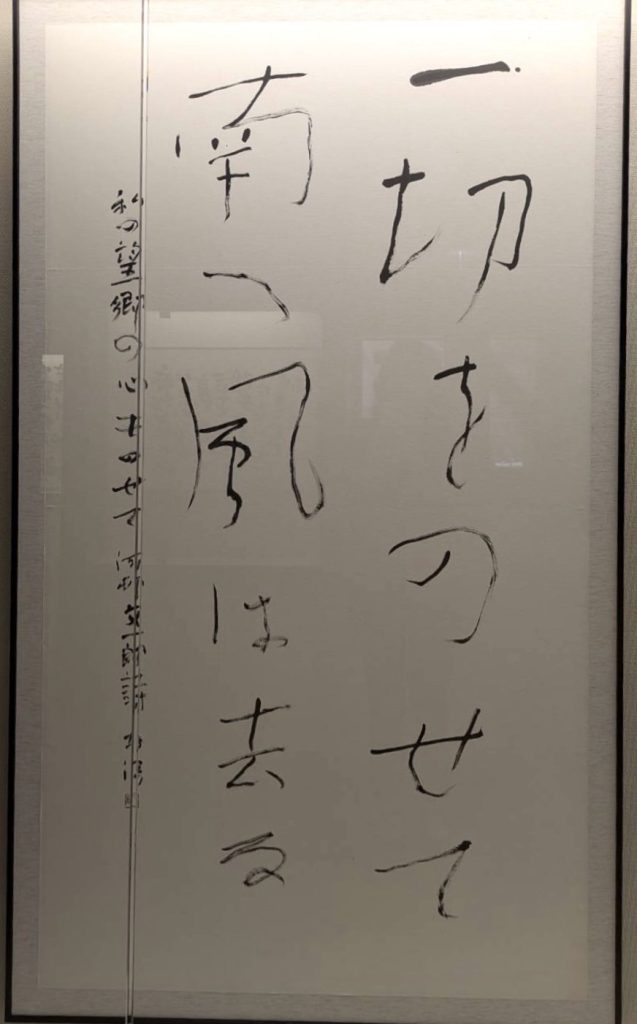 一切をのせて
南へ風は去る
私の望郷の心廿日せて